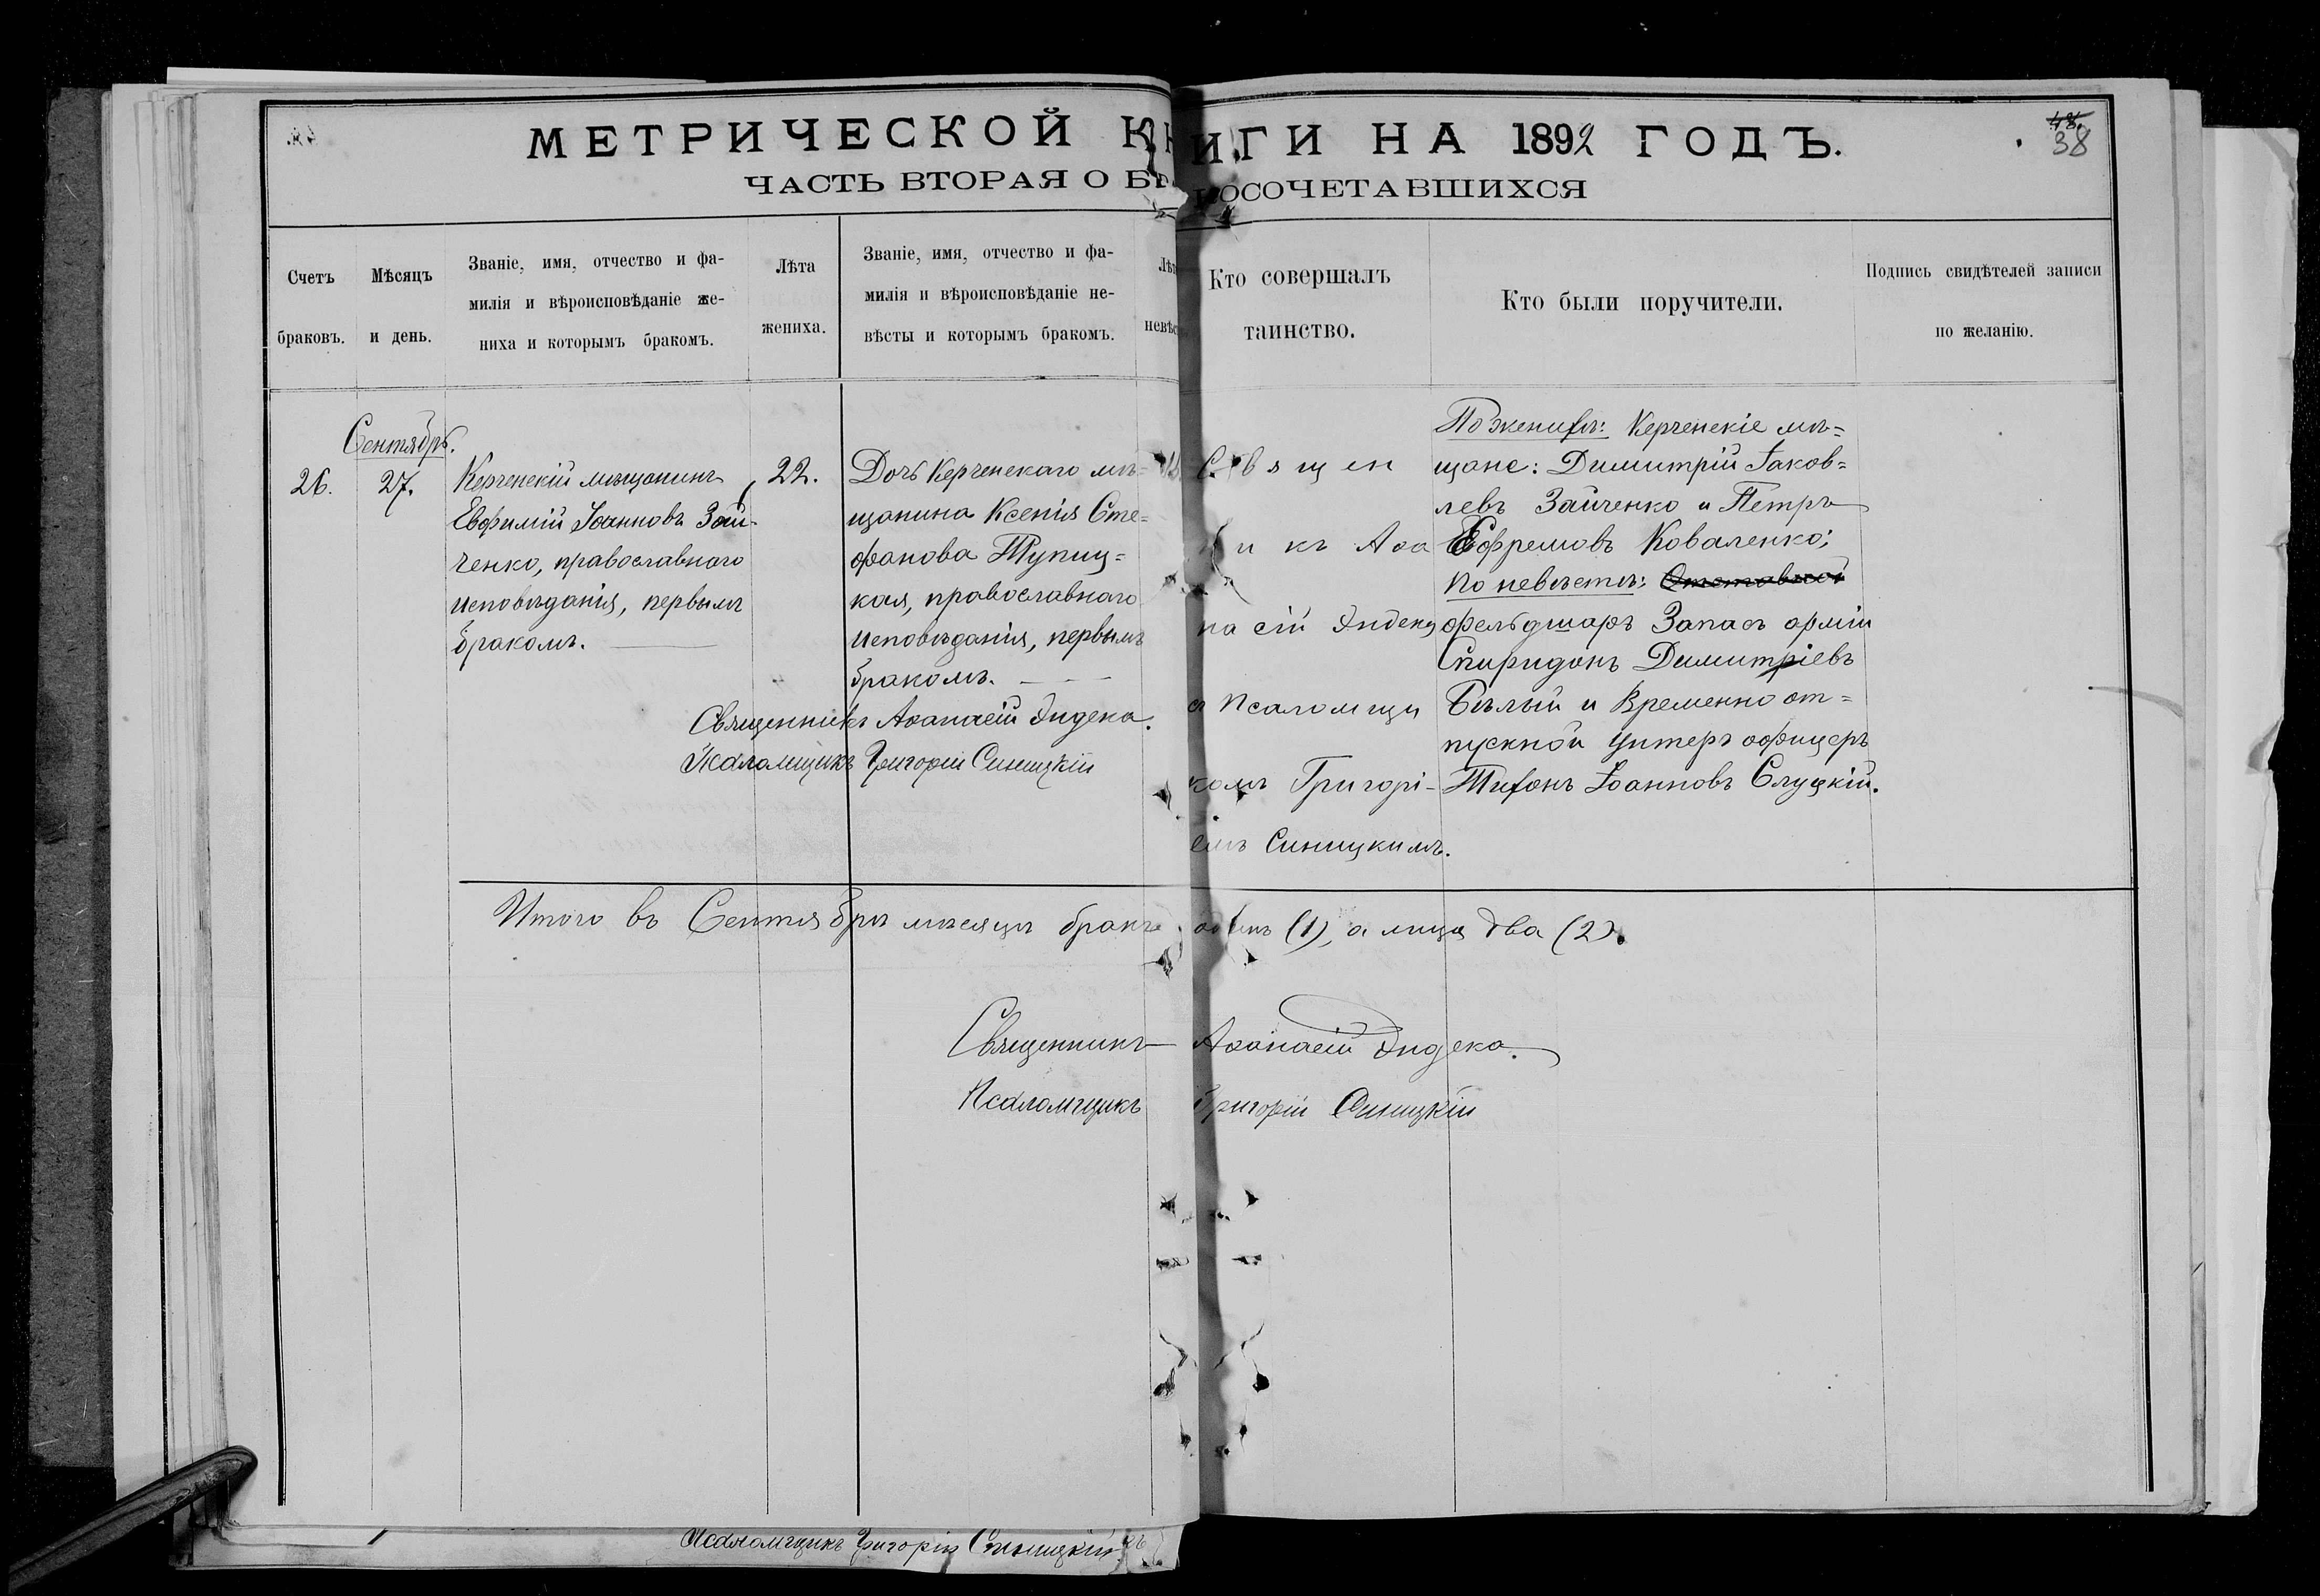 МЕТРИЧЕСКОЙ КНИГИ НА 1892 ГОДЪ.
38
ЧАСТЬ ВТОРАЯ О БРАКОСОЧЕТАВШИХСЯ
Счетъ
браковъ.
Мѣсяцъ
и день.
Званіе, имя, отчество и фа-
милія и вѣроисповѣданіе же-
ниха и которымъ бракомъ.
Лѣта
жениха.
Званіе, имя, отчество и фа-
милія и вѣроисповѣданіе не-
вѣсты и которымъ бракомъ.
Лѣт
невѣс
Кто совершалъ
таинство.
Кто были поручители.
Подпись свидѣтелей записи
по желанію.
Сентябрь.
26.
27.
Керченскій мѣщанинъ
Евфимій Іоанновъ Зай-
ченко, православнаго
исповѣданія, первымъ
бракомъ.
22.
Дочь Керченскаго мѣ=
щанина Ксенія Сте=
фанова Тупиц=
кая, православнаго
исповѣданія, первымъ
бракомъ.
Священникъ Аѳанасій Эндека.
Псаломщикъ Григорій Синицкій
Священ
никъ Аѳа
насій Эндека
съ Псаломщи
комъ Григорі-
емъ Синицкимъ.
По женихѣ: Керченскіе мѣ=
щане: Димитрій Іаков=
левъ Зайченко и Петръ
Ефремовъ Коваленко;
По невѣстѣ: Отставной
фельдшаръ Запасъ арміи
Спиридонъ Димитріевъ
Бѣлый и Временно от=
пускной Унтеръ офицеръ
Тихонъ Іоанновъ Слуцкій.
Итого въ Сентябрѣ мѣсяцѣ бракъ одинъ (1), а лица два (2).
Священникъ Аѳанасій Эндека.
Псаломщикъ Григорій Синицкій
Псаломщикъ Григорій Синицкій